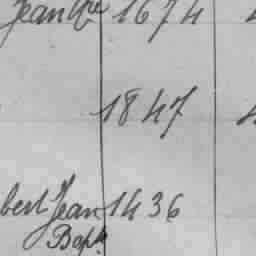 Jean Bre 1674
1847
bert Jean 1436
Bapte